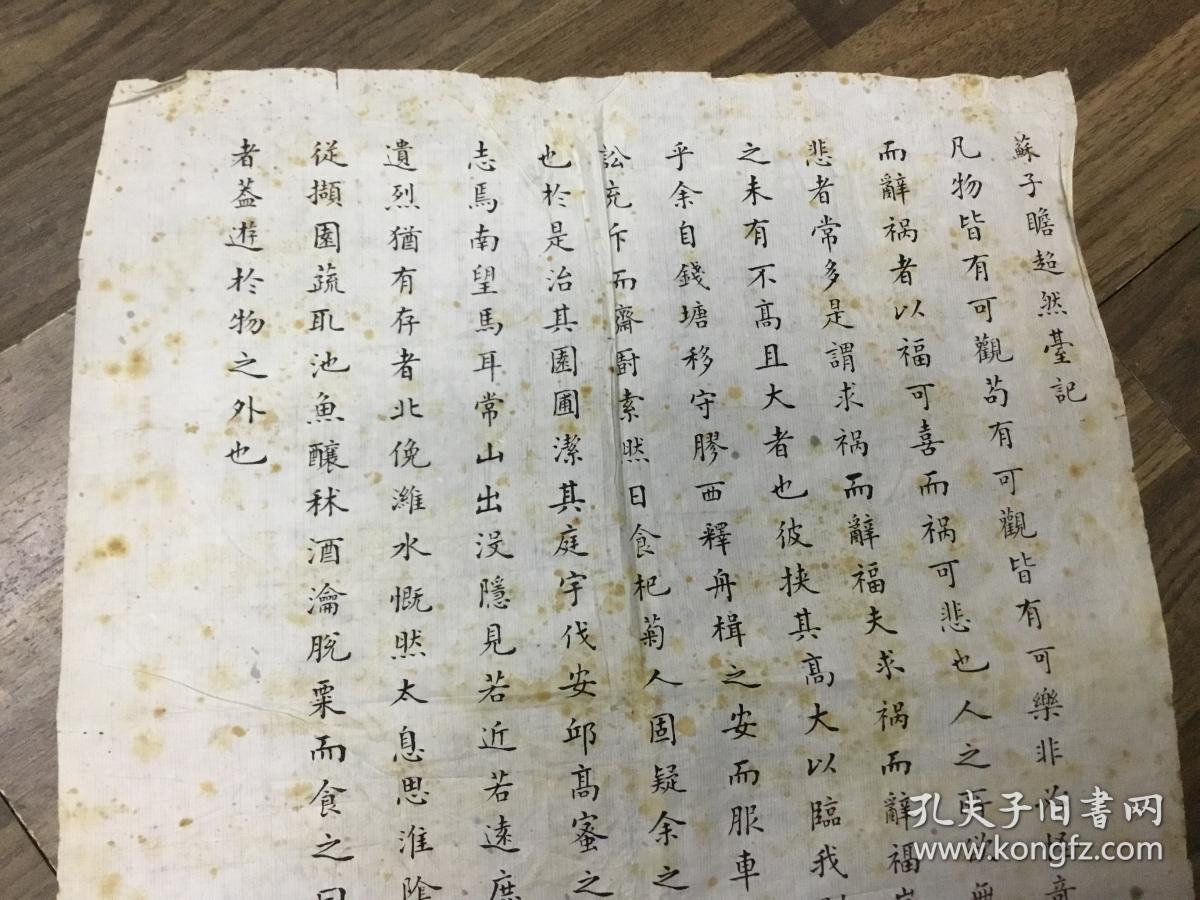 蘇子瞻超然臺記
凡物皆有可觀苟有可觀皆有可樂非
而辭禍者以福可喜而禍可悲也人之所欲無
悲者常多是謂求禍而辭福夫求禍而辭福
之未有不高且大者也彼挟其高大以臨我
乎余自錢塘移守膠西釋舟楫之安而服車
訟充斥而齋厨索然日食杞菊人固疑余之
也於是治其園圃潔其庭宇伐安邱高蜜之
志焉南望馬耳常山出沒隱見若近若遠庶
遺烈猶有存者北俛濰水慨然太息思淮陰
從擷園蔬取池魚釀秫酒瀹脫粟而食之曰
者葢遊於物之外也
孔夫子旧书网
www.kongfz.com